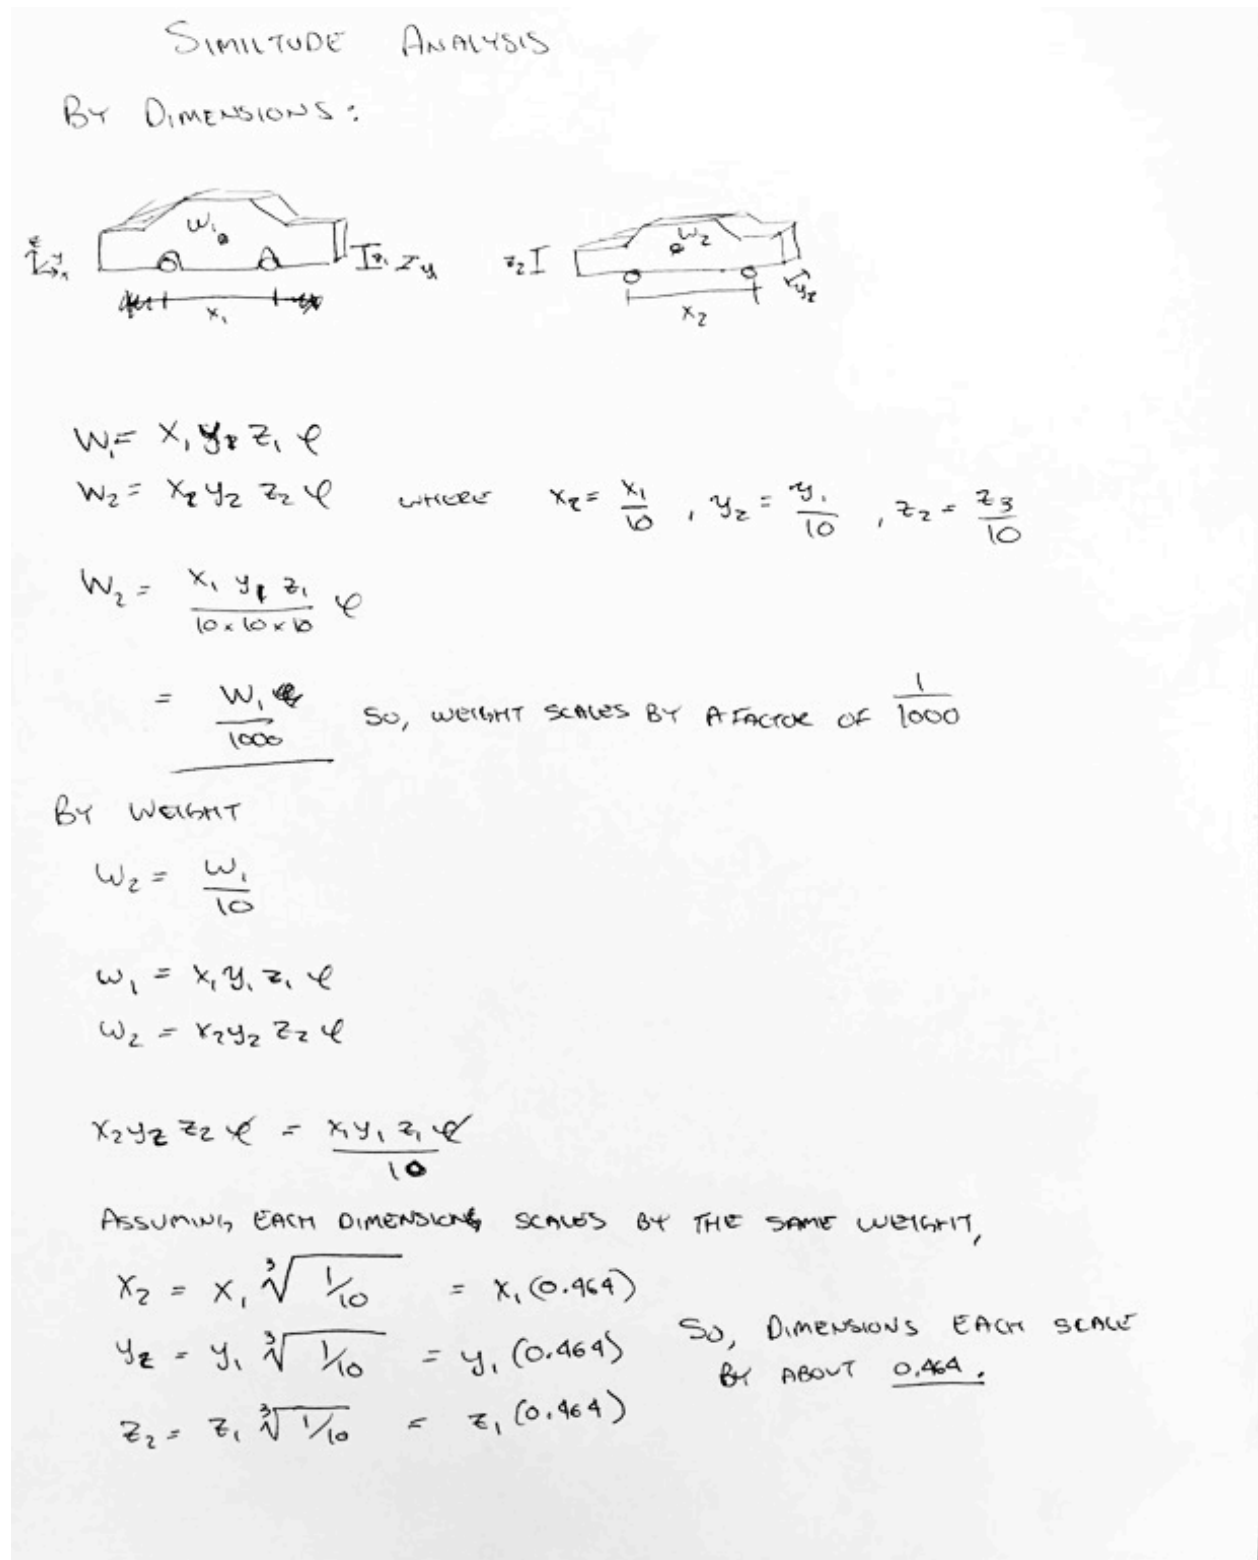 SIMILTUDE ANALYSIS
BY DIMENSIONS:
W₁ W₂
z₂
x₁ x₂
W₁ = x₁ y₁ z₁ φ
W₂ = x₂ y₂ z₂ φ WHERE x₂ = x₁/10 , y₂ = y₁/10 , z₂ = z₃/10
W₂ = x₁ y₁ z₁ / 10 × 10 × 10 φ
= W₁/1000 SO, WEIGHT SCALES BY A FACTOR OF 1/1000
BY WEIGHT
W₂ = W₁/10
W₁ = x₁ y₁ z₁ φ
W₂ = x₂ y₂ z₂ φ
x₂ y₂ z₂ φ = x₁ y₁ z₁ φ / 10
ASSUMING EACH DIMENSIONS SCALES BY THE SAME WEIGHT,
x₂ = x₁ ∛1/10 = x₁ (0.464)
y₂ = y₁ ∛1/10 = y₁ (0.464) SO, DIMENSIONS EACH SCALE
BY ABOUT 0.464.
z₂ = z₁ ∛1/10 = z₁ (0.464)